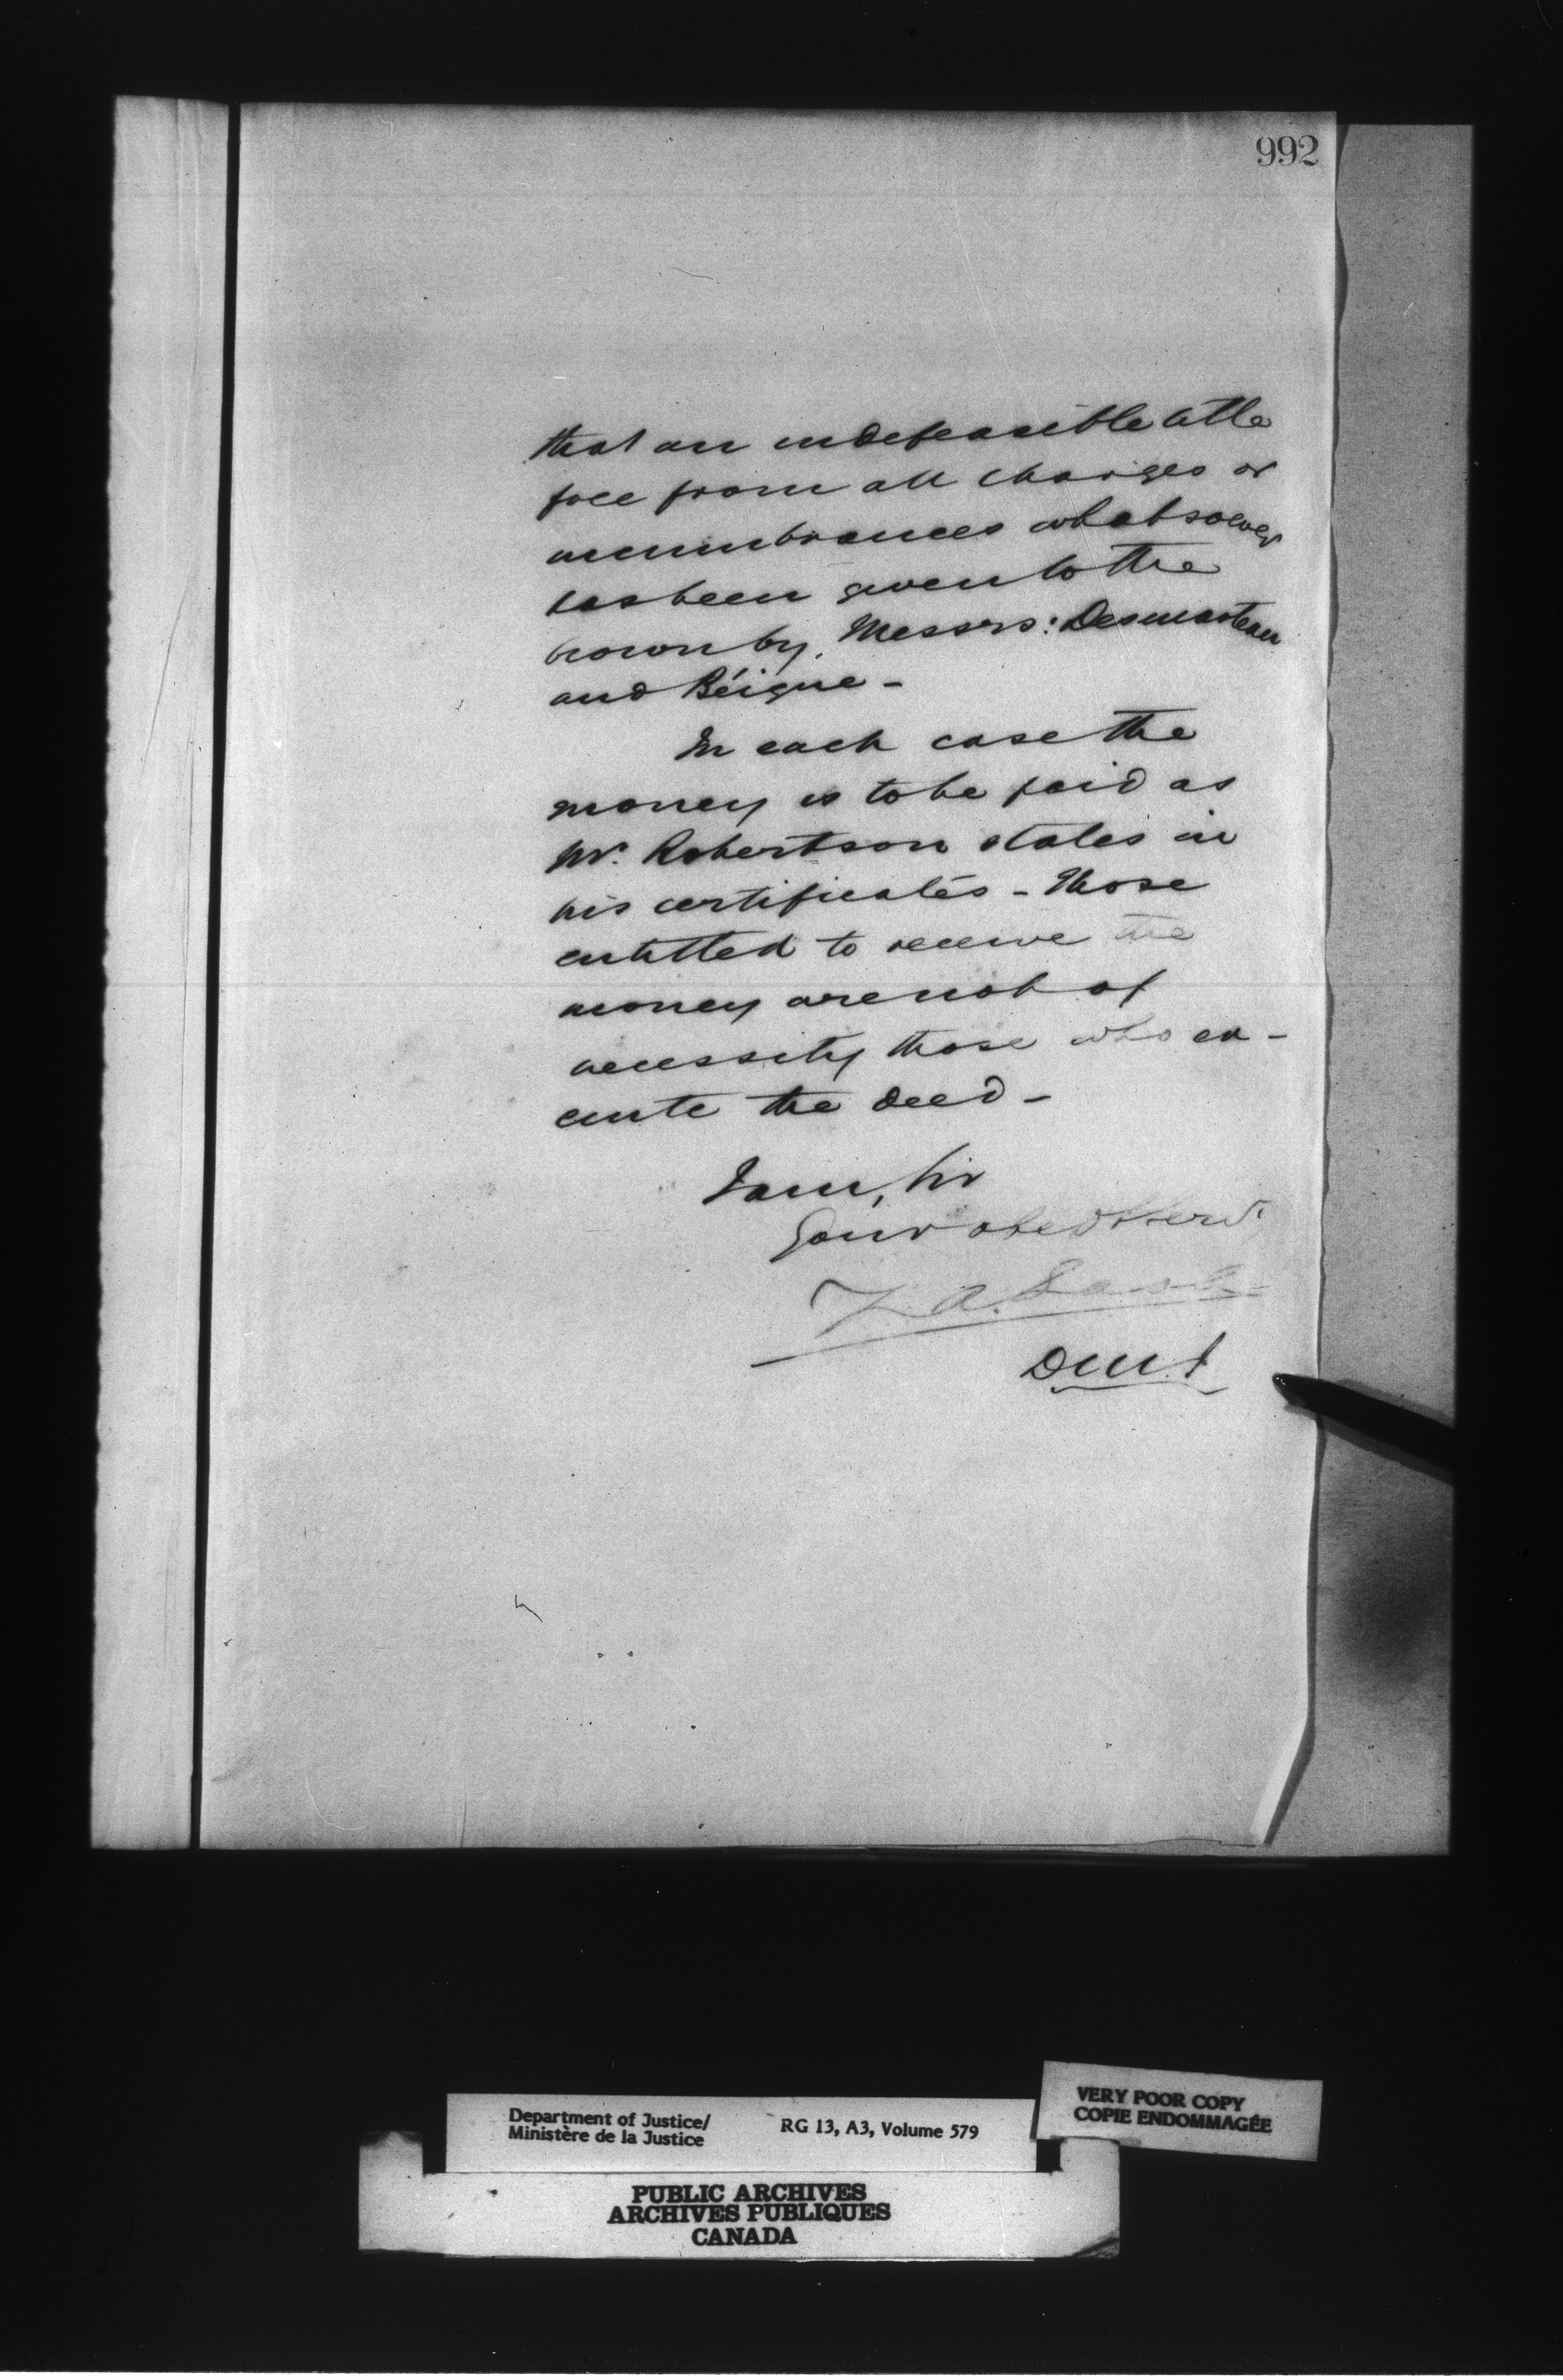 992
that an indefeasible title
free from all charges or
incumbrances whatsoever
has been given to the
crown by Messrs: Desmarteau
and Béique -
In each case the
money is to be paid as
Mr. Robertson states in
his certificates - Those
entitled to receive the
money are not of
necessity those who ex-
ecute the deed -
I am, Sir
Your obed Servt
Z. A. Lash
D.M.J
Department of Justice/
Ministère de la Justice
RG 13, A3, Volume 579
VERY POOR COPY
COPIE ENDOMMAGÉE
PUBLIC ARCHIVES
ARCHIVES PUBLIQUES
CANADA